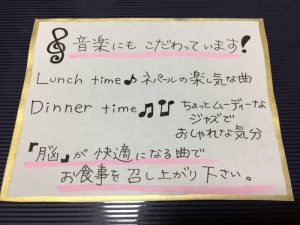 音楽にも こだわっています!
Lunch time♪ネパールの楽し気な曲
Dinner time♫♫ ちょっとムーデーな
ジャズで
おしゃれな気分
『脳』が快適になる曲で
お食事を召し上がり下さい。